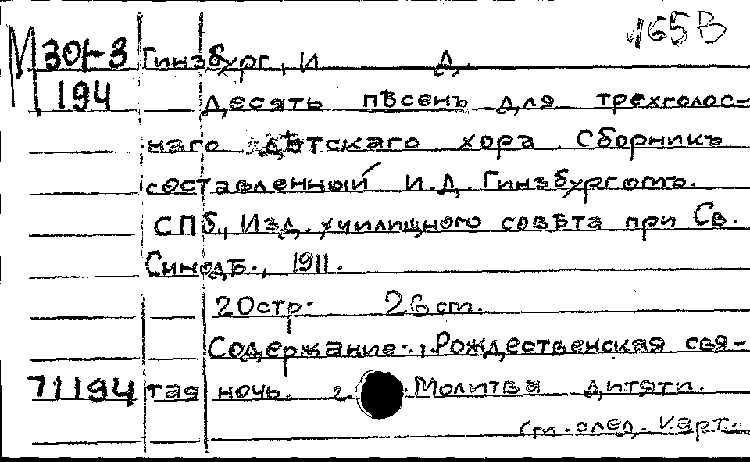 165В
М 301-3 Гинзбург, И. Д.
194 Десять пѣсенъ для трехголос=
наго дѣтскаго хора. Сборникъ
составленный И.Д. Гинзбургомъ.
СПб., Изд. училищного совѣта при Св.
Синодѣ., 1911.
20стр. 26 cm.
Содержание: 1. Рождественская свя-
71194 тая ночь. 2. Молитва дитяти.
См. след. карт.